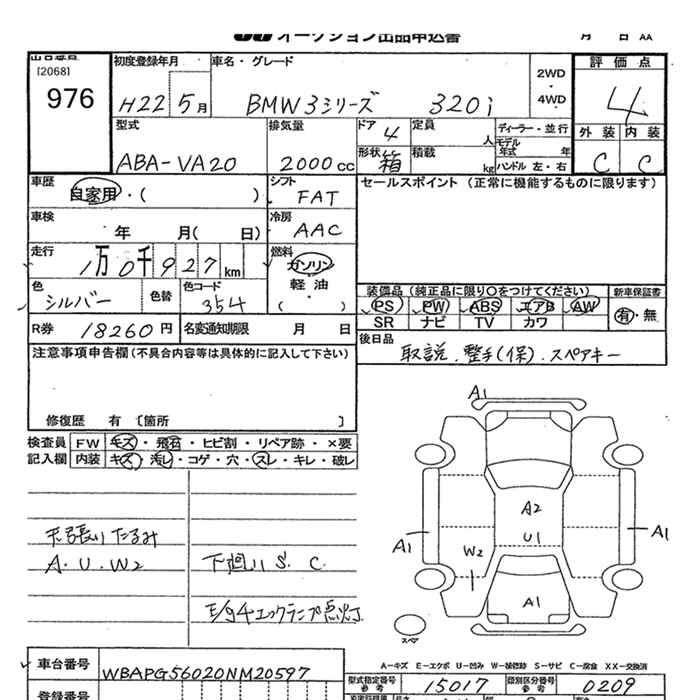 オークション出品申込書 月 日 AA
出品番号 [2068] 976
初度登録年月 H22 5月
車名・グレード BMW3シリーズ 320i
2WD・4WD
評価点 4
外装 内装
C C
型式 ABA-VA20
排気量 2000cc
ドア 4
定員 人
形状 箱
積載 kg
ディーラー・並行
モデル年式 年
ハンドル 左・右
車歴 自家用・( )
シフト FAT
セールスポイント(正常に機能するものに限ります)
車検 年 月( 日)
冷房 AAC
走行 1万0千927km
燃料 ガソリン 軽油 ( )
色 シルバー 色替
色コード 354
装備品(純正品に限り○をつけてください) 新車保証書
PS PW ABS エアB AW 有・無
SR ナビ TV カワ
R券 18260円 名変通知期限 月 日
後日品 取説.整手(保).スペアキー
注意事項申告欄(不具合内容等は具体的に記入して下さい)
修復歴 有 [箇所 ]
検査員 FW キズ・飛石・ヒビ割・リペア跡・×要
記入欄 内装 キズ・汚レ・コゲ・穴・スレ・キレ・破レ
天張りたるみ
A.U.W2 下廻り S. C.
E/gチェックランプ点灯
A1
A2
U1
A1 W2 A1
A1
スペア
A-キズ E-エクボ U-凹み W-補修跡 S-サビ C-腐食 XX-交換済
車台番号 WBAPG56020NM20597
型式指定番号 参考 15017 類別区分番号 参考 0209
登録番号